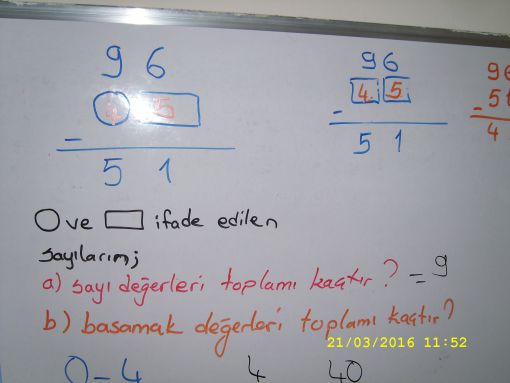 96 96 96
45 45 51
- - -
51 51 4
○ ve □ ifade edilen
sayılarım;
a) sayı değerleri toplamı kaçtır? = 9
b) basamak değerleri toplamı kaçtır?
21/03/2016 11:52
○ = 4 4 40